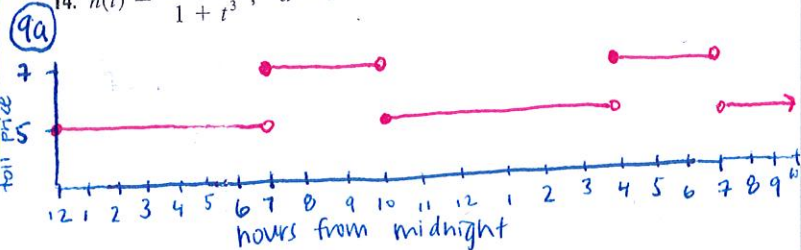 14. h(t)
1 + t³
9a
7
5
toll price
12 1 2 3 4 5 6 7 8 9 10 11 12 1 2 3 4 5 6 7 8 9
hours from midnight